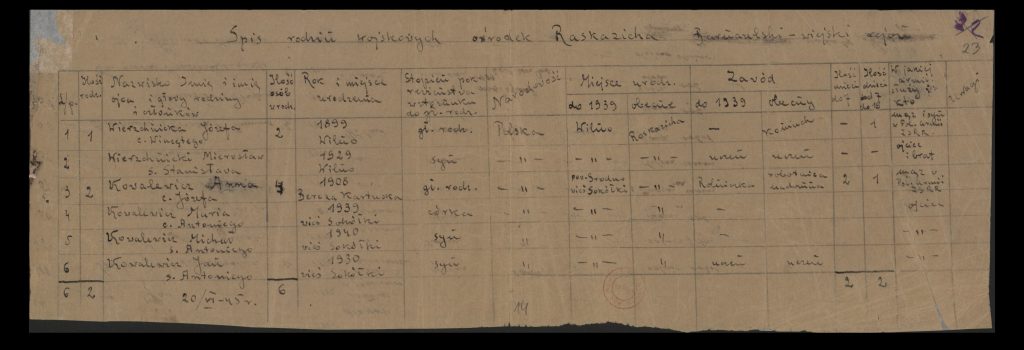 Spis rodzin wojskowych ośrodek Raskazicha Barnaulski-wiejski rejon
32
23
L/p. Ilość rodz. Nazwisko Imię i imię ojca i głowy rodziny i członków Ilość osób w rodz. Rok i miejsce urodzenia Stopień pokrewieństwa w stosunku do gł. rodz. Narodowość Miejsce do 1939 obecnie Zawód do 1939 obecny Ilość do 7 Ilość od 7 do 16 W jakiej armii służy i kto Uwagi
1 1 Wierzchnicka Józefa c. Wincętego 2 1899 Wilno gł. rodz. Polska Wilno Raskazicha — koniuch — 1 mąż i syn w Pol. armii ZSRR.
2 Wierzchnicki Mierosław s. Stanisława 1929 Wilno syn — „ — — „ — — „ — uczeń uczeń — ojciec i brat
3 2 Kovalewicz Anna c. Józefa 4 1908 Bereza Kartuska gł. rodz. — „ — pow. Grodno wieś Sokółki — „ — Rolnicza robotnica 2 1 mąż w Pol. armii ZSRR
4 Kovalewicz Maria c. Antoniego 1939 wieś Sokółki córka — „ — — „ — „ — ojciec
5 Kovalewicz Michał s. Antoniego 1940 wieś Sokółki syn „ — „ — „ — — „ —
6 Kovalewicz Jan s. Antoniego 1930 wieś Sokółki syn „ — „ — „ uczeń uczeń — „ —
6 2 20/VI-45 r. 6 2 2
14